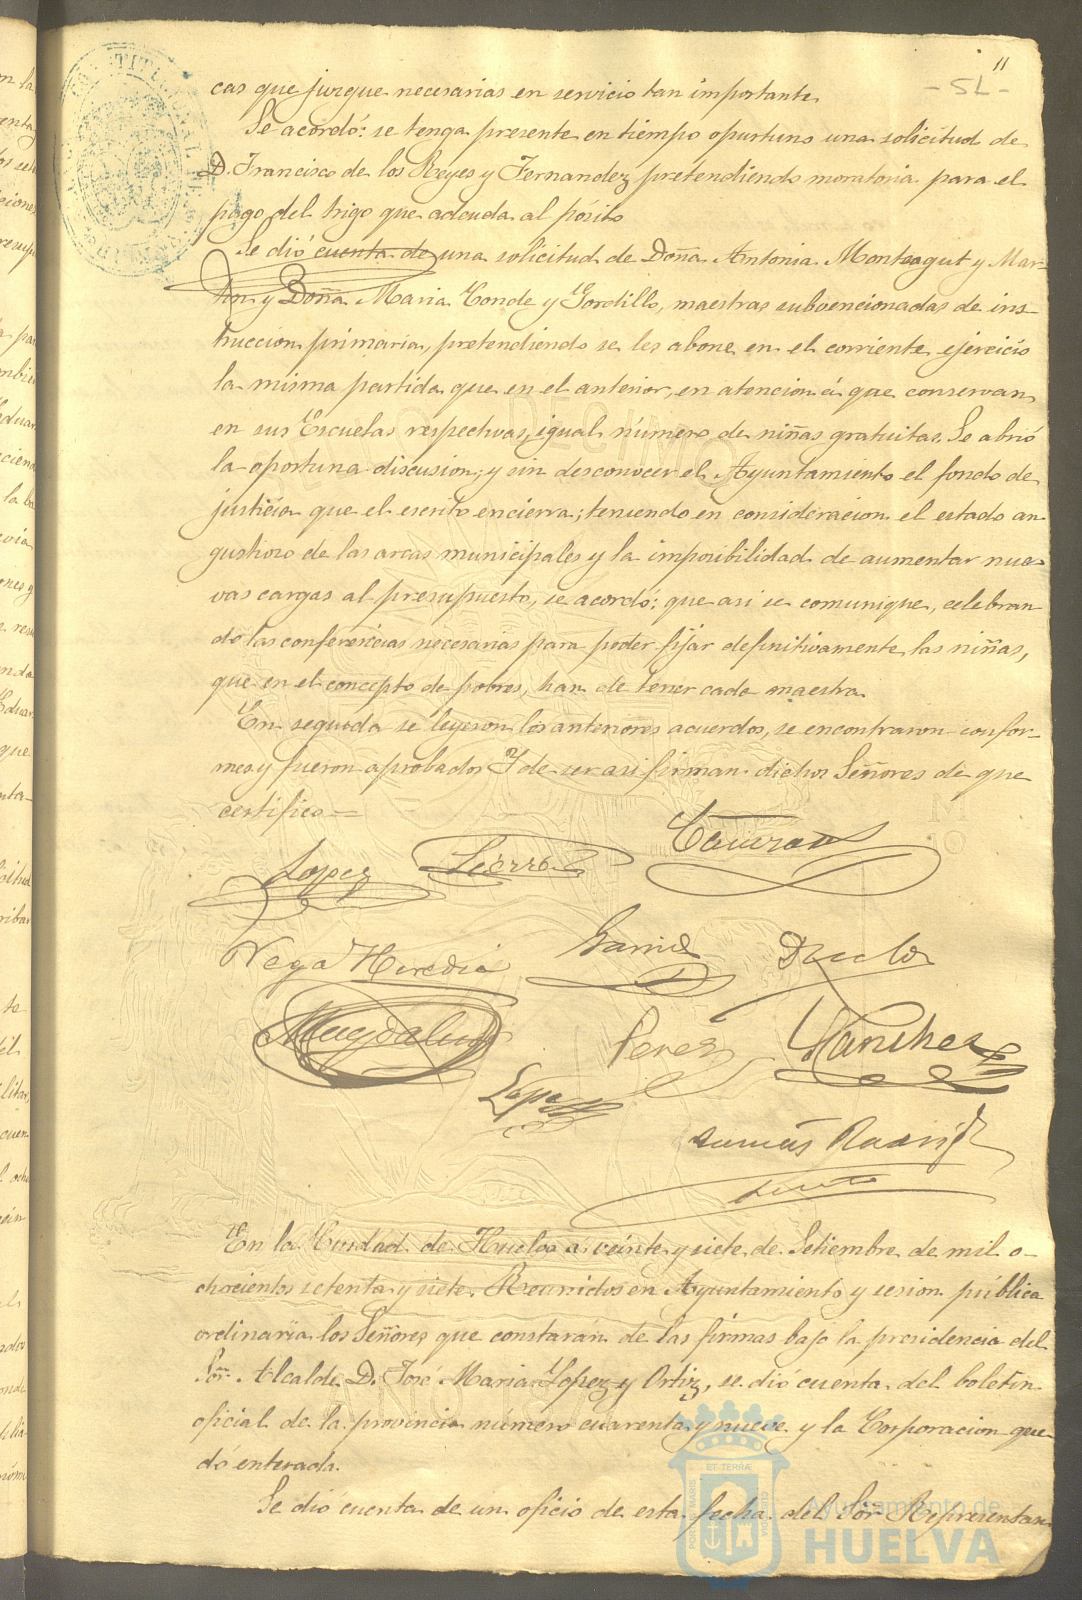 11
- 51 -
cas que juzgue necesarias en servicio tan importante.
Se acordó: se tenga presente en tiempo oportuno una solicitud de
D. Francisco de los Reyes y Fernandez pretendiendo moratoria para el
pago del trigo que adeuda al pósito
Se dió cuenta de una solicitud de Doña Antonia Monteagut y Mar-
tin y Doña Maria Conde y Gordillo, maestras subvencionadas de ins-
truccion primaria, pretendiendo se les abone en el corriente ejercicio
la misma partida que en el anterior, en atencion á que conservan
en sus Escuelas respectivas, igual número de niñas gratuitas. Se abrió
la oportuna discusion; y sin desconocer el Ayuntamiento el fondo de
justicia que el escrito encierra; teniendo en consideracion el estado an
gustioso de las arcas municipales y la imposibilidad de aumentar nue-
vas cargas al presupuesto, se acordó: que asi se comunique, celebran
do las conferencias necesarias para poder fijar definitivamente las niñas,
que en el concepto de pobres, han de tener cada maestra.
En seguida se leyeron los anteriores acuerdos, se encontraron confor-
mes y fueron aprobados Y de ser asi firman dichos Señores de que
certifico=
Lopez
Vega Heredia
Perez Sanchez
En la Ciudad de Huelva a veinte y siete de Setiembre de mil o-
chocientos setenta y siete. Reunidos en Ayuntamiento y sesion pública
ordinaria los Señores que constarán de las firmas bajo la presidencia del
Sor. Alcalde D. José Maria Lopez y Ortiz, se dió cuenta del boletin
oficial de la provincia número cuarenta y nueve y la Corporacion que
dó enterada.
Se dió cuenta de un oficio de esta fecha del Sor Representan
PORTUS MARIS ET TERRÆ CUSTODIA
Ayuntamiento de
HUELVA